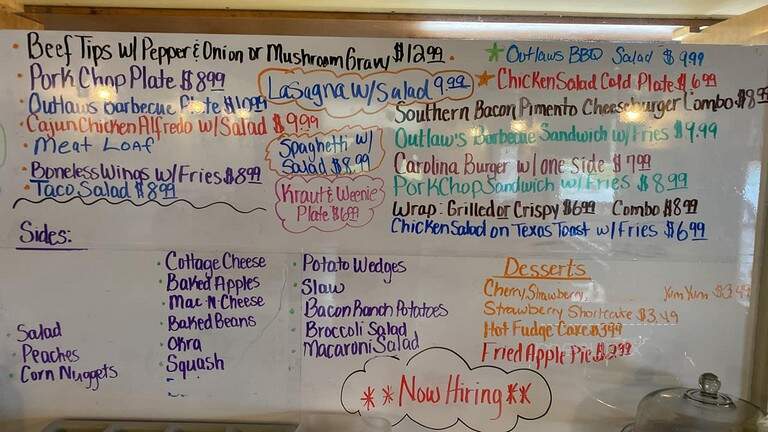 Beef Tips w/ Pepper & Onion or Mushroom Gravy $12.99
Pork Chop Plate $8.99
Outlaws Barbecue Plate $10.99
Cajun Chicken Alfredo w/ Salad $9.99
Meat Loaf
Boneless Wings w/ Fries $8.99
Taco Salad $8.99
Lasagna w/ Salad 9.99
Spaghetti w/
Salad $8.99
Kraut & Weenie
Plate $6.99
Outlaws BBQ Salad $9.99
Chicken Salad Cold Plate $6.99
Southern Bacon Pimento Cheeseburger Combo $8.99
Outlaw's Barbecue Sandwich w/ Fries $9.99
Carolina Burger w/ one side $7.99
Pork Chop Sandwich w/ Fries $8.99
Wrap: Grilled or Crispy $6.99 Combo $8.99
Chicken Salad on Texas Toast w/ Fries $6.99
Sides:
Salad
Peaches
Corn Nuggets
Cottage Cheese
Baked Apples
Mac N Cheese
Baked Beans
Okra
Squash
Potato Wedges
Slaw
Bacon Ranch Potatoes
Broccoli Salad
Macaroni Salad
Desserts
Cherry, Strawberry, Yum Yum $3.49
Strawberry Shortcake $3.49
Hot Fudge Cake $3.99
Fried Apple Pie $2.99
**Now Hiring**